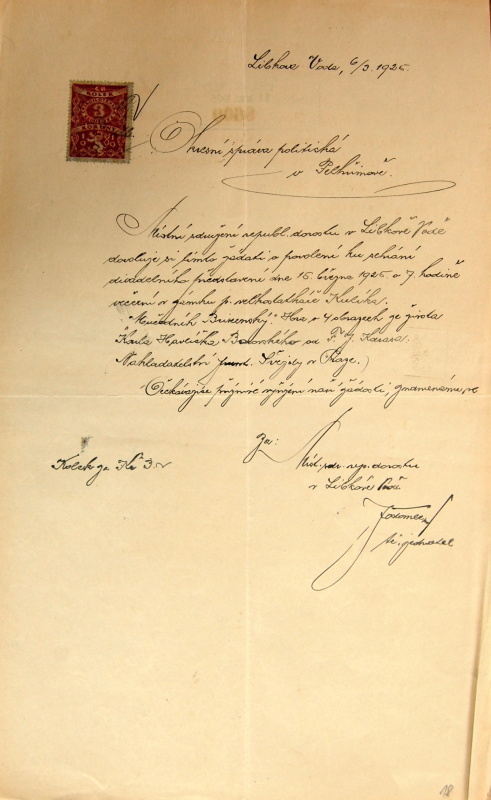 Libkova Voda, 6/3. 1926.
KOLEK
3
KORUNY
Okresní správa politická
v Pelhřimově.
Místní sdružení republ. dorostu v Libkově Vodě
dovoluje si tímto žádati o povolení ku sehrání
divadelního představení dne 15. března 1926 o 7. hodině
večerní v zámku p. velkostatkáře Kulíka.
"Mučedník Brixenský". Hra o 4 obrazech ze života
Karla Havlíčka Borovského od F. J. Karasa.
Nakladatelství Švejdy v Praze.)
Očekávajíce příznivé vyřízení naší žádosti, znamenáme se
Za:
Míst. sdr. rep. dorostu
v Libkově Vodě
Kolek za Kč 3.
t. č. jednatel
18